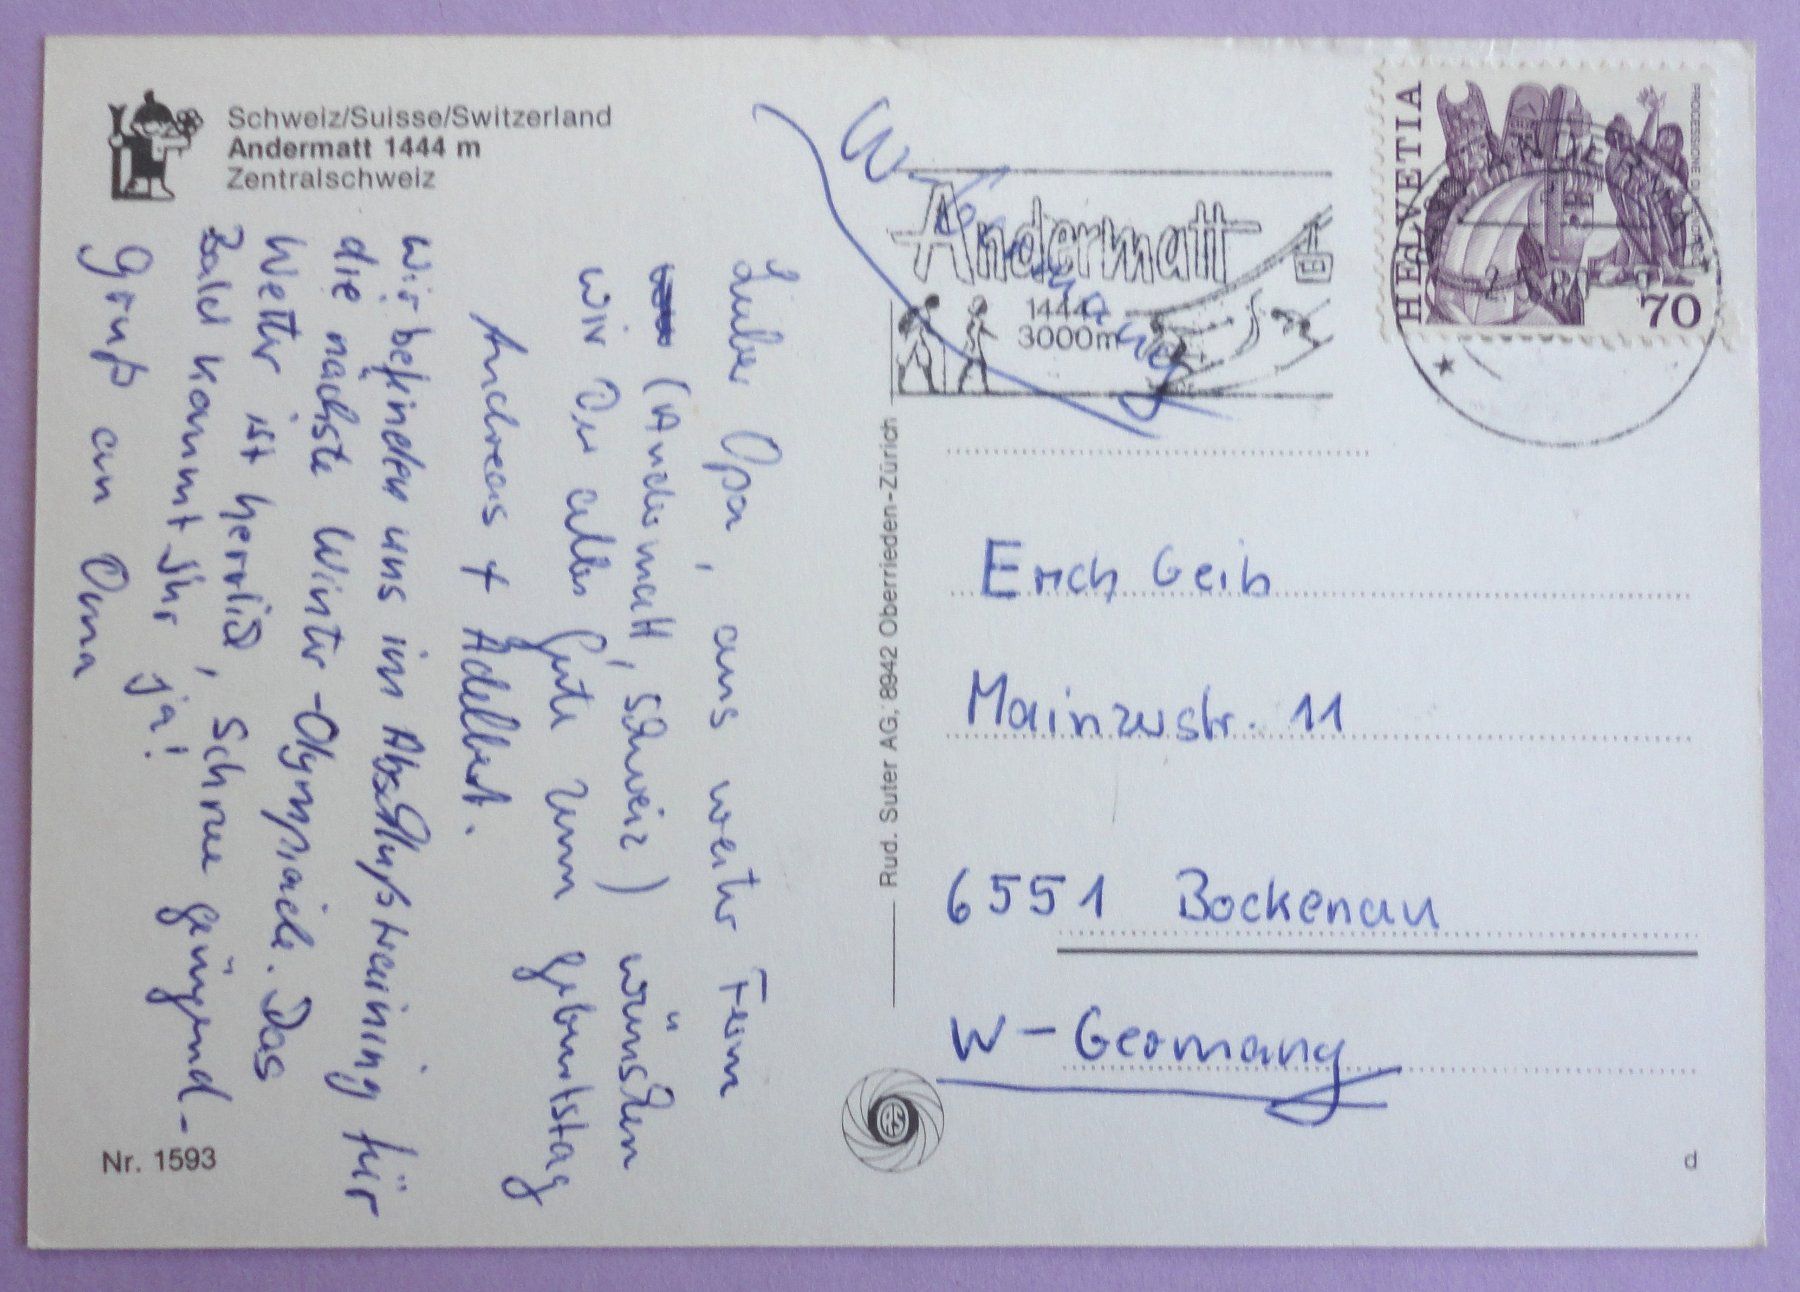 Schweiz/Suisse/Switzerland
Andermatt 1444 m
Zentralschweiz
Lieber Opa, aus weiter Fern
(Andermatt, Schweiz) wünschen
wir Dir alles Gute zum Geburtstag
Andreas + Adelbert.
Wir befinden uns im Abschlußtraining für
die nächste Winter-Olympiade. Das
Wetter ist herrlich, Schnee genügend-
Bald kommt Ihr ja!
Gruß an Oma
Nr. 1593
Rud. Suter AG, 8942 Oberrieden-Zürich
W-Germany
Andermatt
1444
3000m
HELVETIA
70
Erich Geib
Mainzerstr. 11
6551 Bockenau
W-Germany
d